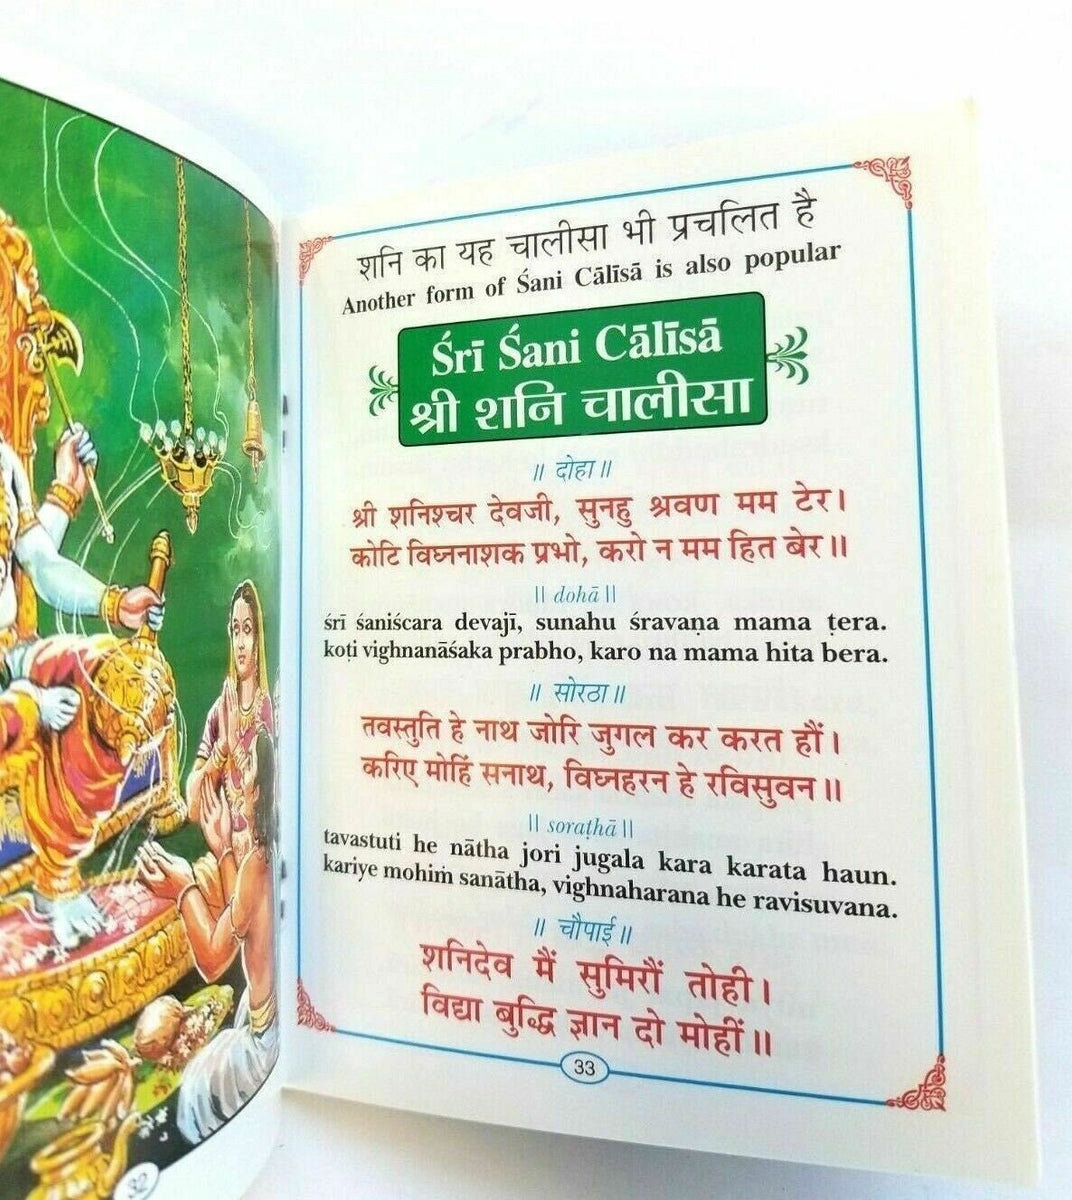 शनि का यह चालीसा भी प्रचलित है
Another form of Śani Cālīsā is also popular
Śrī Śani Cālīsā
श्री शनि चालीसा
॥ दोहा ॥
श्री शनिश्चर देवजी, सुनहु श्रवण मम टेर।
कोटि विघ्ननाशक प्रभो, करो न मम हित बेर॥
|| dohā ||
śrī śaniścara devajī, sunahu śravaṇa mama ṭera.
koṭi vighnanāśaka prabho, karo na mama hita bera.
॥ सोरठा ॥
तवस्तुति हे नाथ जोरि जुगल कर करत हौं।
करिए मोहिं सनाथ, विघ्नहरन हे रविसुवन॥
|| soraṭhā ||
tavastuti he nātha jori jugala kara karata haun.
kariye mohiṁ sanātha, vighnaharana he ravisuvana.
॥ चौपाई ॥
शनिदेव मैं सुमिरौं तोही।
विद्या बुद्धि ज्ञान दो मोहीं॥
33
32